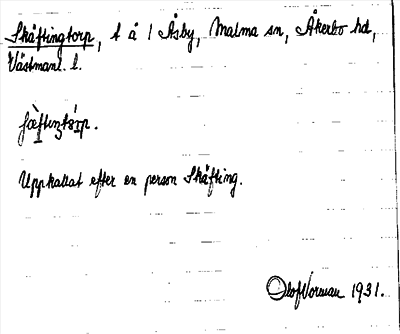 Skäftingtorp, t å 1 Åsby, Malma sn, Åkerbo hd,
Västmanl. l.
Uppkallat efter en person Skäfting.
Olof Norman 1931.